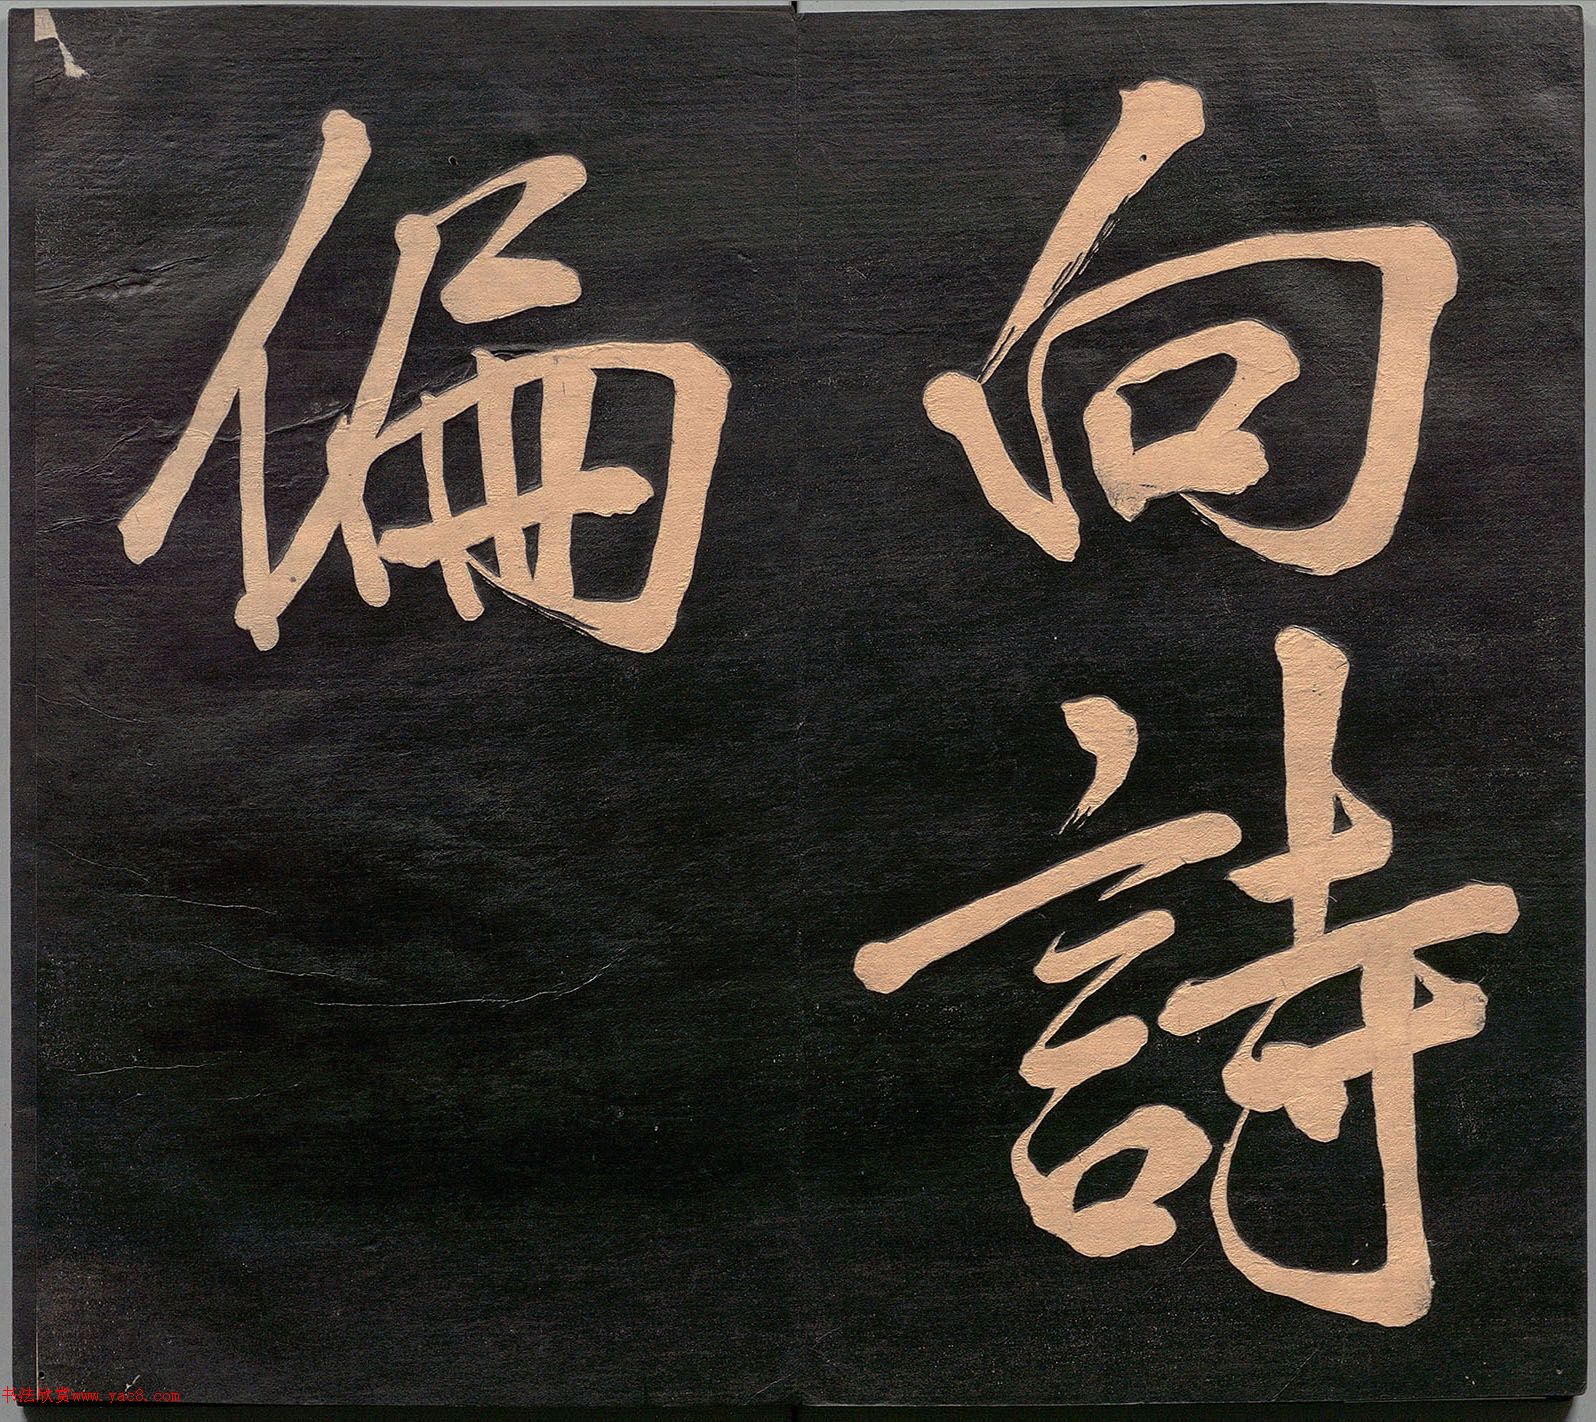 向詩
偏
书法欣赏www.yac8.com